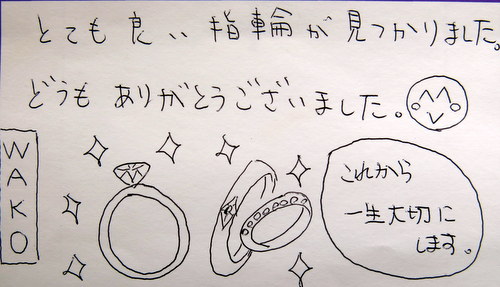 とても良い指輪が見つかりました。
どうもありがとうございました。
WAKO
これから
一生大切に
します。